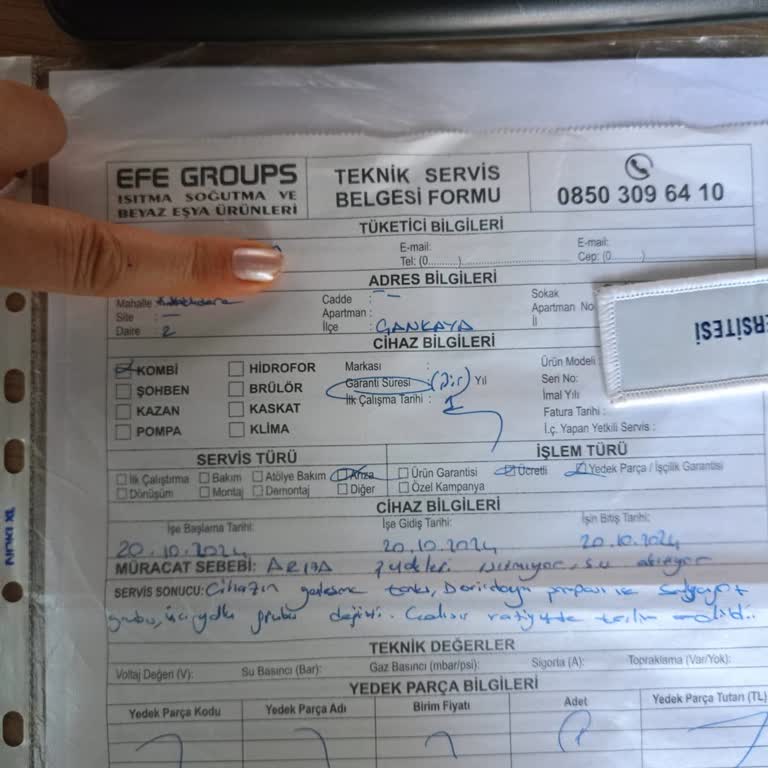 EFE GROUPS
ISITMA SOĞUTMA VE
BEYAZ EŞYA ÜRÜNLERİ
TEKNİK SERVİS
BELGESİ FORMU
0850 309 64 10
TÜKETİCİ BİLGİLERİ
E-mail: E-mail:
Tel: (0.......) Cep: (0.......)
ADRES BİLGİLERİ
Mahalle Cadde : — Sokak
Site : — Apartman : Apartman No
Daire 2 İlçe : ÇANKAYA İl
CİHAZ BİLGİLERİ
KOMBİ HİDROFOR Markası : Ürün Modeli :
ŞOHBEN BRÜLÖR Garanti Süresi : (Bir) Yıl Seri No:
KAZAN KASKAT İlk Çalışma Tarihi : 1 İmal Yılı
POMPA KLİMA Fatura Tarihi :
İ.ç. Yapan Yetkili Servis :
ERSİTESİ
SERVİS TÜRÜ İŞLEM TÜRÜ
İlk Çalıştırma Bakım Atölye Bakım Arıza Ürün Garantisi Ücretli Yedek Parça / İşçilik Garantisi
Dönüşüm Montaj Demontaj Diğer Özel Kampanya
CİHAZ BİLGİLERİ
İşe Başlama Tarihi: İşe Gidiş Tarihi: İşin Bitiş Tarihi:
20.10.2024 20.10.2024 20.10.2024
MÜRACAT SEBEBİ: ARIZA ısınmıyor, su akıtıyor
SERVİS SONUCU: Cihazın genleşme tankı, pompası ve
grubu, üç yollu grubu değişti. teslim edildi.
TEKNİK DEĞERLER
Voltaj Değeri (V): Su Basıncı (Bar): Gaz Basıncı (mbar/psi): Sigorta (A): Topraklama (Var/Yok):
YEDEK PARÇA BİLGİLERİ
Yedek Parça Kodu Yedek Parça Adı Birim Fiyatı Adet Yedek Parça Tutarı (TL)